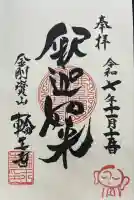 奉拝
令和七年十一月十五日
釈迦如来
金剛寳山
輪王寺